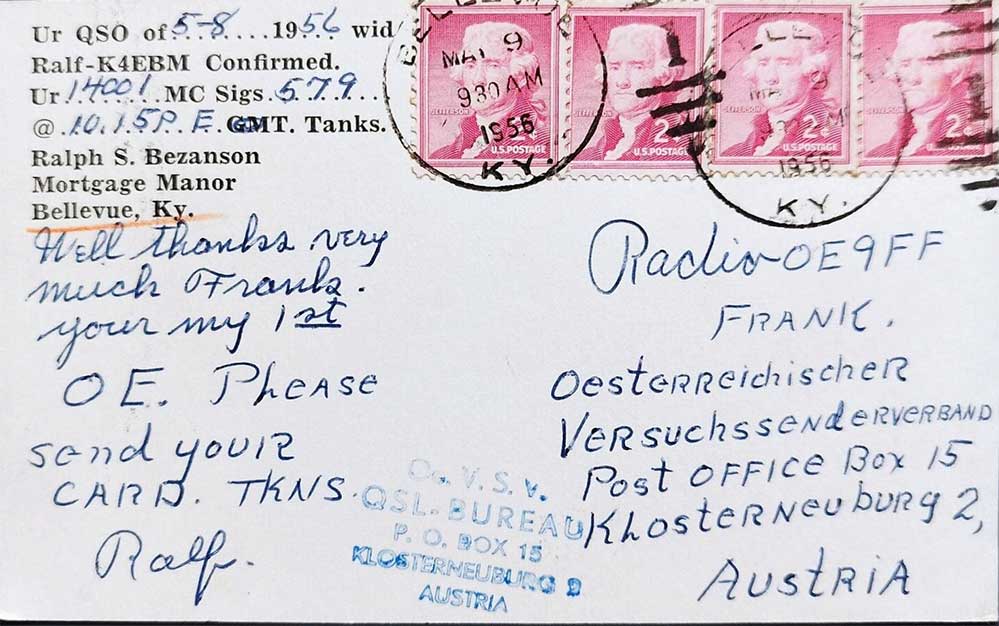 Ur QSO of 5-8 1956 wid
Ralf-K4EBM Confirmed.
Ur 14001 MC Sigs. 579
@ 10.15 P. E. GMT. Tanks.
Ralph S. Bezanson
Mortgage Manor
Bellevue, Ky.
Well thanks very
much Frank.
your my 1st
OE. Phease
send your
CARD. TKNS.
Ralf.
MAY 9
930 AM
1956
KY.
JEFFERSON
2¢
U.S. POSTAGE
MAY 9
1956
KY.
JEFFERSON
2¢
U.S. POSTAGE
Radio OE9FF
FRANK.
Oesterreichischer
VERSUCHSSENDERVERBAND
Post OFFICE Box 15
KLOSTERNEUBURG 2,
AUSTRIA
Oe. V. S. V.
QSL-BUREAU
P. O. BOX 15
KLOSTERNEUBURG 2
AUSTRIA